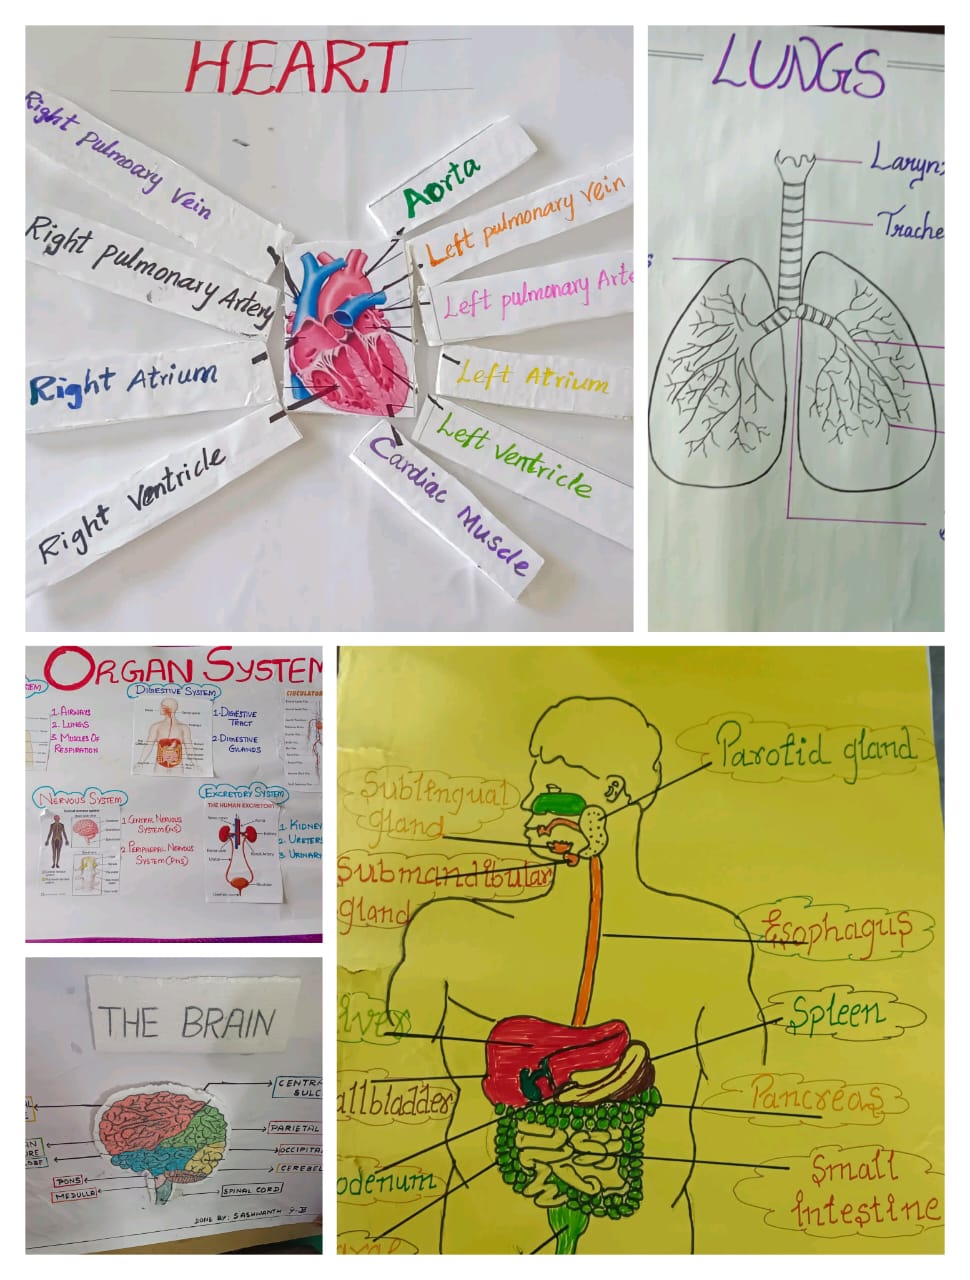 HEART
Right pulmoary Vein
Right pulmonary Artery
Right Atrium
Right Ventricle
Aorta
Left pulmonary vein
Left pulmonary Arte
Left Atrium
Left ventricle
Cardiac Muscle
LUNGS
Laryn
Trache
s
ORGAN SYSTEM
EM
1. AIRWAYS
2. LUNGS
3. MUSCLES OF
RESPIRATION
DIGESTIVE SYSTEM
1. DIGESTIVE
TRACT
2. DIGESTIVE
GLANDS
CIRCULATOR
NERVOUS SYSTEM
1. CENTRAL NERVOUS
SYSTEM(NS)
2. PERIPHERAL NERVOUS
SYSTEM(PNS)
EXCRETORY SYSTEM
THE HUMAN EXCRETORY
1. KIDNEY
2. URETERS
3. URINARY
THE BRAIN
CENTRA
SULC
PARIETAL
OCCIPITA
CEREBEL
SPINAL CORD
PONS
MEDULLA
DONE BY: SASHWANTH 9-B
Parotid gland
Sublingual
gland
Submandibular
gland
Esophagus
Spleen
Pancreas
Small
intestine
iver
allbladder
odenum